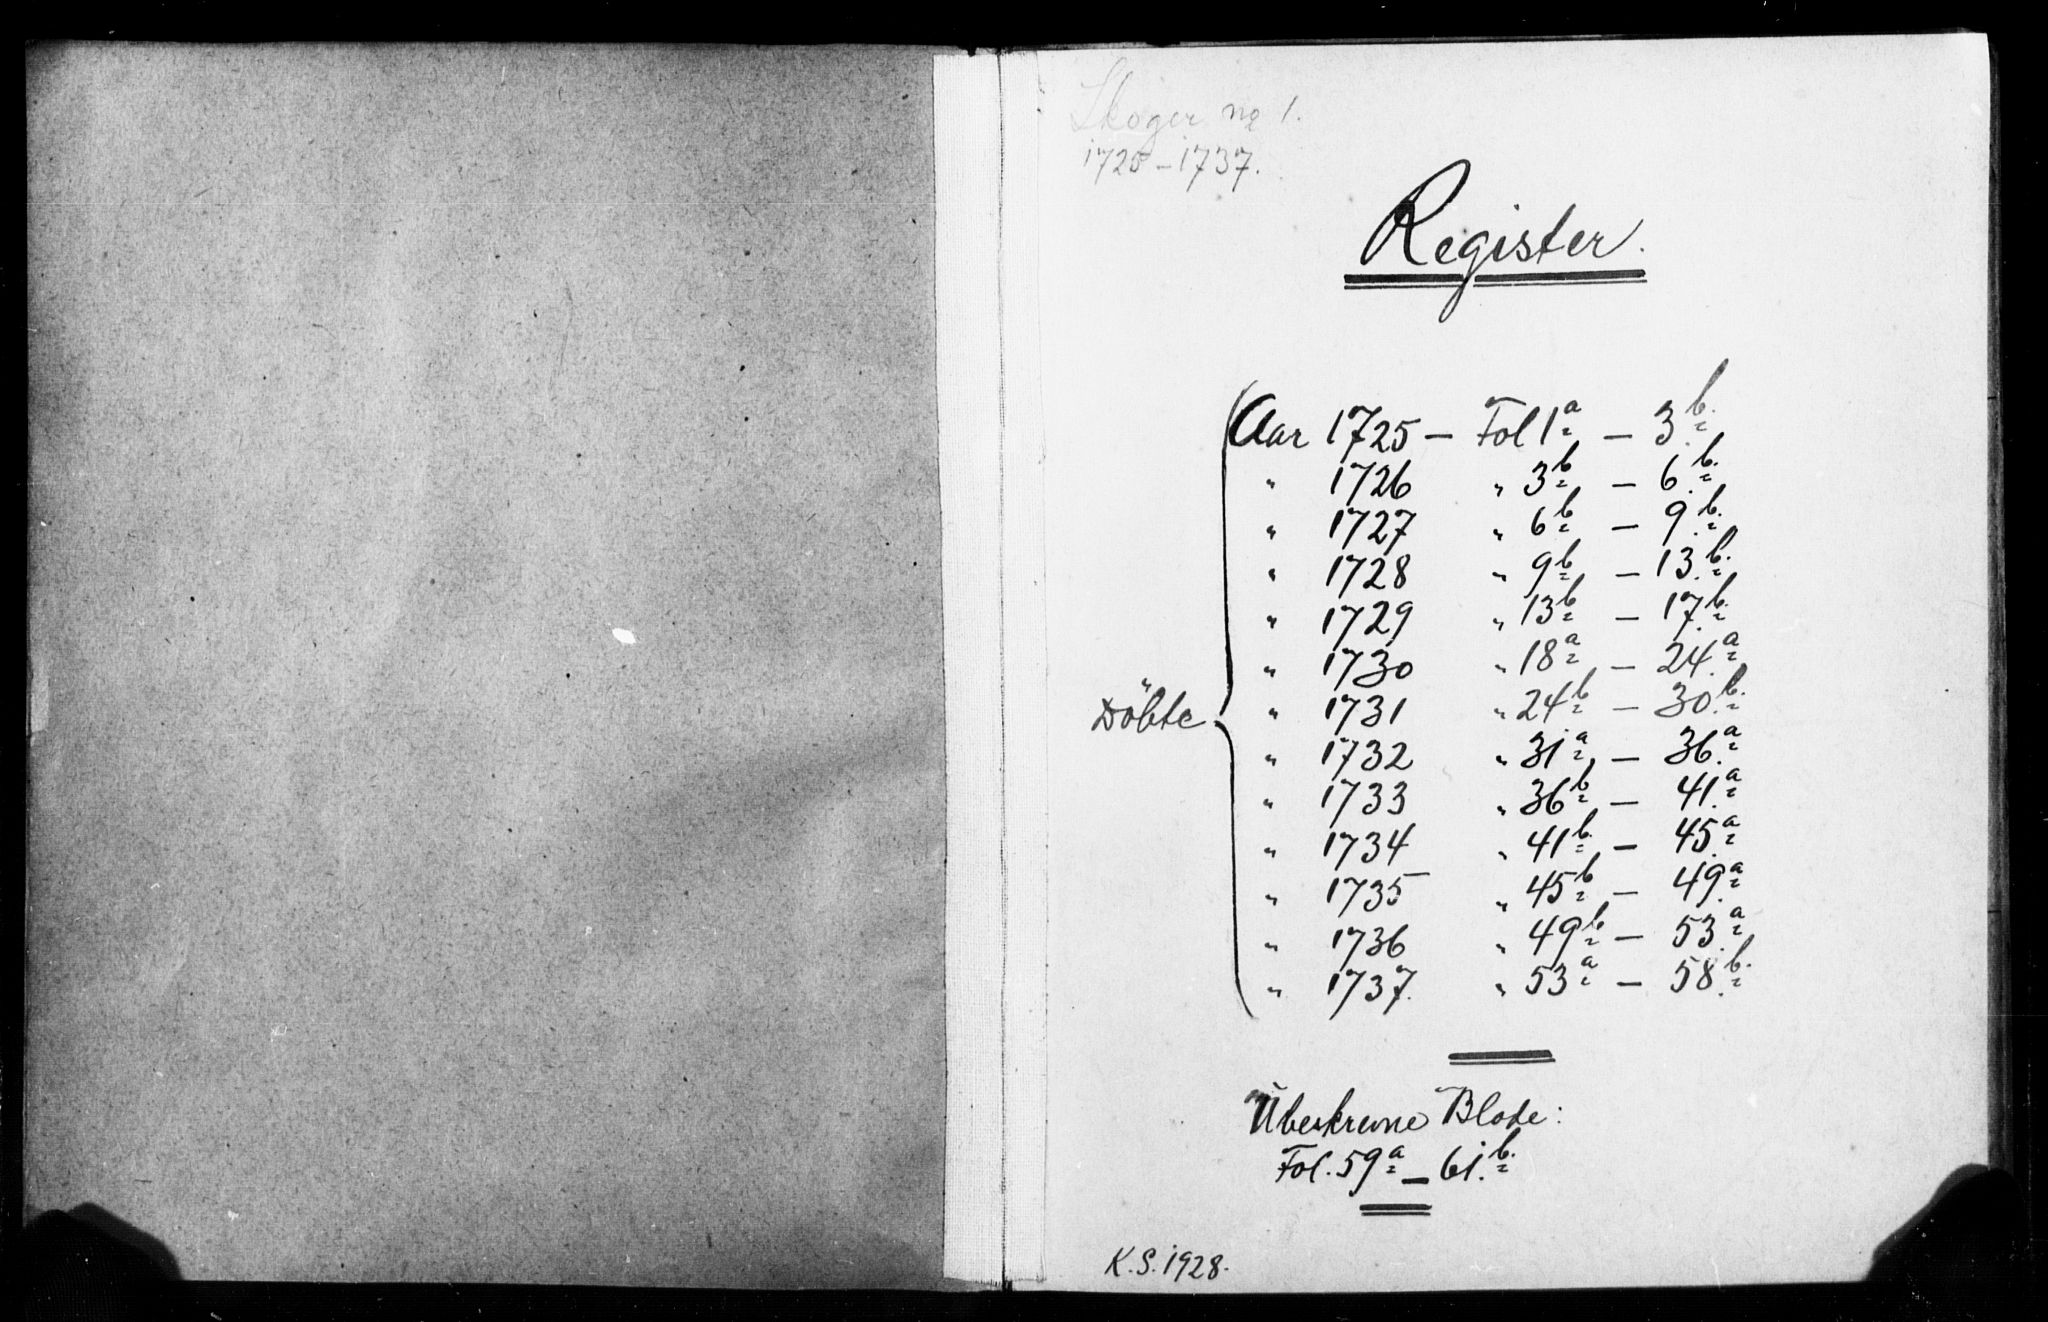 Skoger no 1.
1725-1737.
Register.
Döbte
Aar 1725 — Fol 1a — 3b.
" 1726 " 3b — 6b.
" 1727 " 6b — 9b.
" 1728 " 9b — 13b.
" 1729 " 13b — 17b.
" 1730 " 18a — 24a.
" 1731 " 24b — 30b.
" 1732 " 31a — 36a.
" 1733 " 36b — 41a.
" 1734 " 41b — 45a.
" 1735 " 45b — 49a.
" 1736 " 49b — 53a.
" 1737. " 53a — 58b.
Ubeskrevne Blade:
Fol. 59a — 61b.
K.S. 1928.